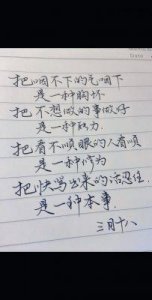 把咽不下的气咽下
是一种胸怀
把不想做的事做好
是一种能力
把看不顺眼的人看顺
是一种修为
把快骂出来的话忍住
是一种本事.
三月十八